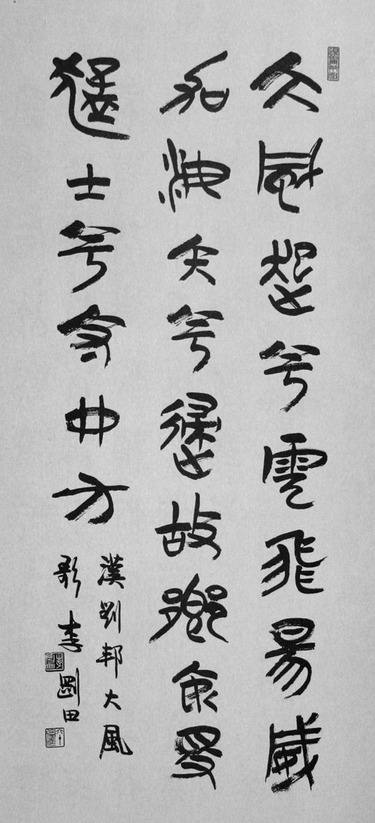 大風起兮雲飛昜威
加海内兮歸故鄉安得
猛士兮守四方
漢劉邦大風
歌李剛田